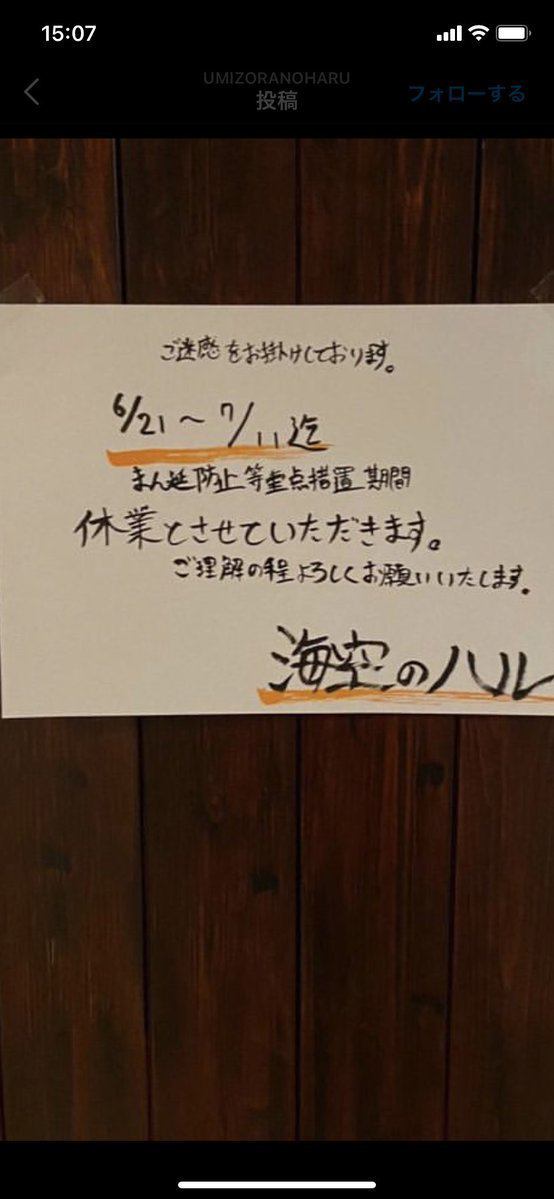 15:07
UMIZORANOHARU
投稿
フォローする
ご迷惑をお掛けしております。
6/21～7/11迄
まん延防止等重点措置期間
休業とさせていただきます。
ご理解の程よろしくお願いいたします。
海空のハル